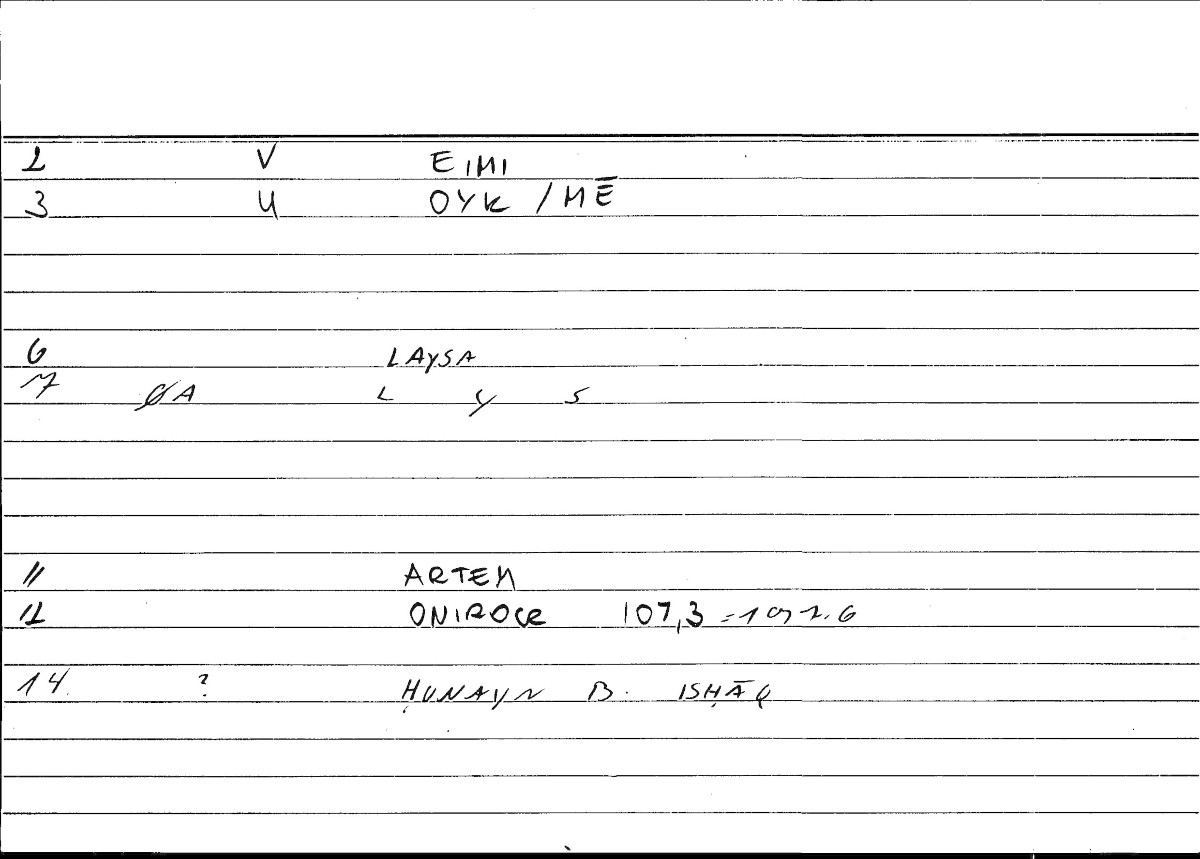 2 V EIMI
3 U OYK / MĒ
6 LAYSA
7 ØA L Y S
11 ARTEM
12 ONIROCR 107,3
14 ? ḤUNAYN B. ISḤĀQ